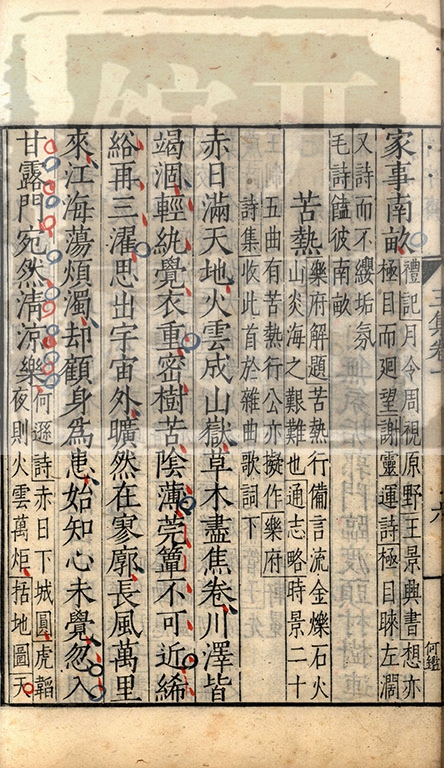 家事南畝禮記月令周視原野王景典書想亦
極目而廻望謝靈運詩極目睞左濶
又詩而不纓垢氛
毛詩饁彼南畝
苦熱樂府解題苦熱行備言流金爍石火
山炎海之艱難也通志略時景二十
五曲有苦熱行公亦擬作樂府
詩集收此首於雜曲歌詞下
赤日滿天地火雲成山嶽草木盡焦卷川澤皆
竭涸輕紈覺衣重密樹苦陰薄莞簟不可近絺
綌再三濯思出宇宙外曠然在寥廓長風萬里
來江海蕩煩濁却顧身為患始知心未覺忽入
甘露門宛然清涼樂何遜詩赤日下城圓虎韜
夜則火雲萬炬括地圖天
六
何鑑